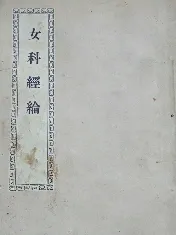 女科經綸